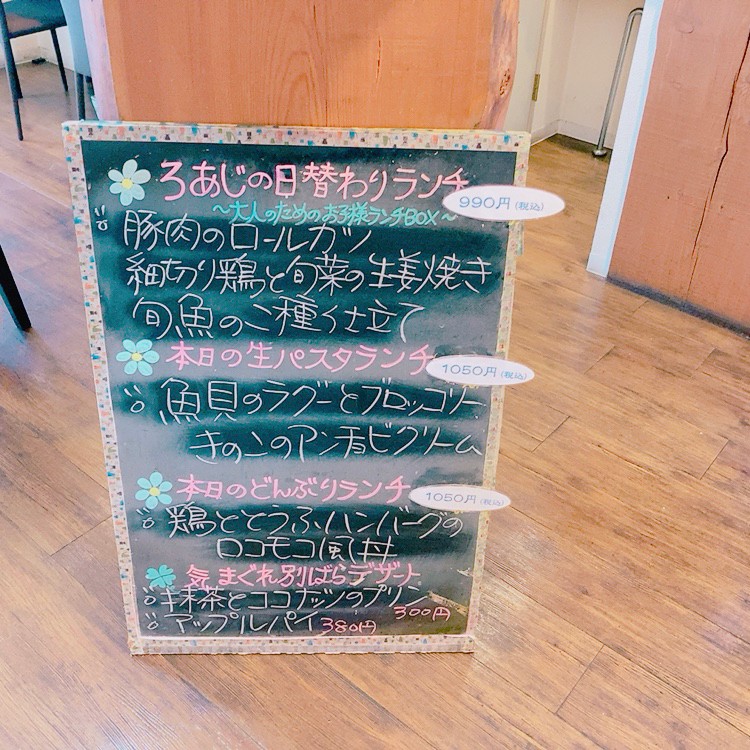 ろあじの日替わりランチ
990円(税込)
～大人のためのお子様ランチBOX～
豚肉のロールカツ
細切り鶏と旬菜の生姜焼き
旬魚の二種仕立て
本日の生パスタランチ
1050円(税込)
魚貝のラグーとブロッコリー
きのこのアンチョビクリーム
本日のどんぶりランチ
1050円(税込)
鶏ととうふハンバーグの
ロコモコ風丼
気まぐれ別ばらデザート
抹茶とココナッツのプリン
300円
アップルパイ 380円